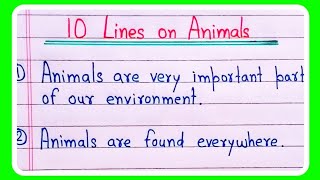 10 Lines on Animals
1) Animals are very important part
of our environment.
2) Animals are found everywhere.